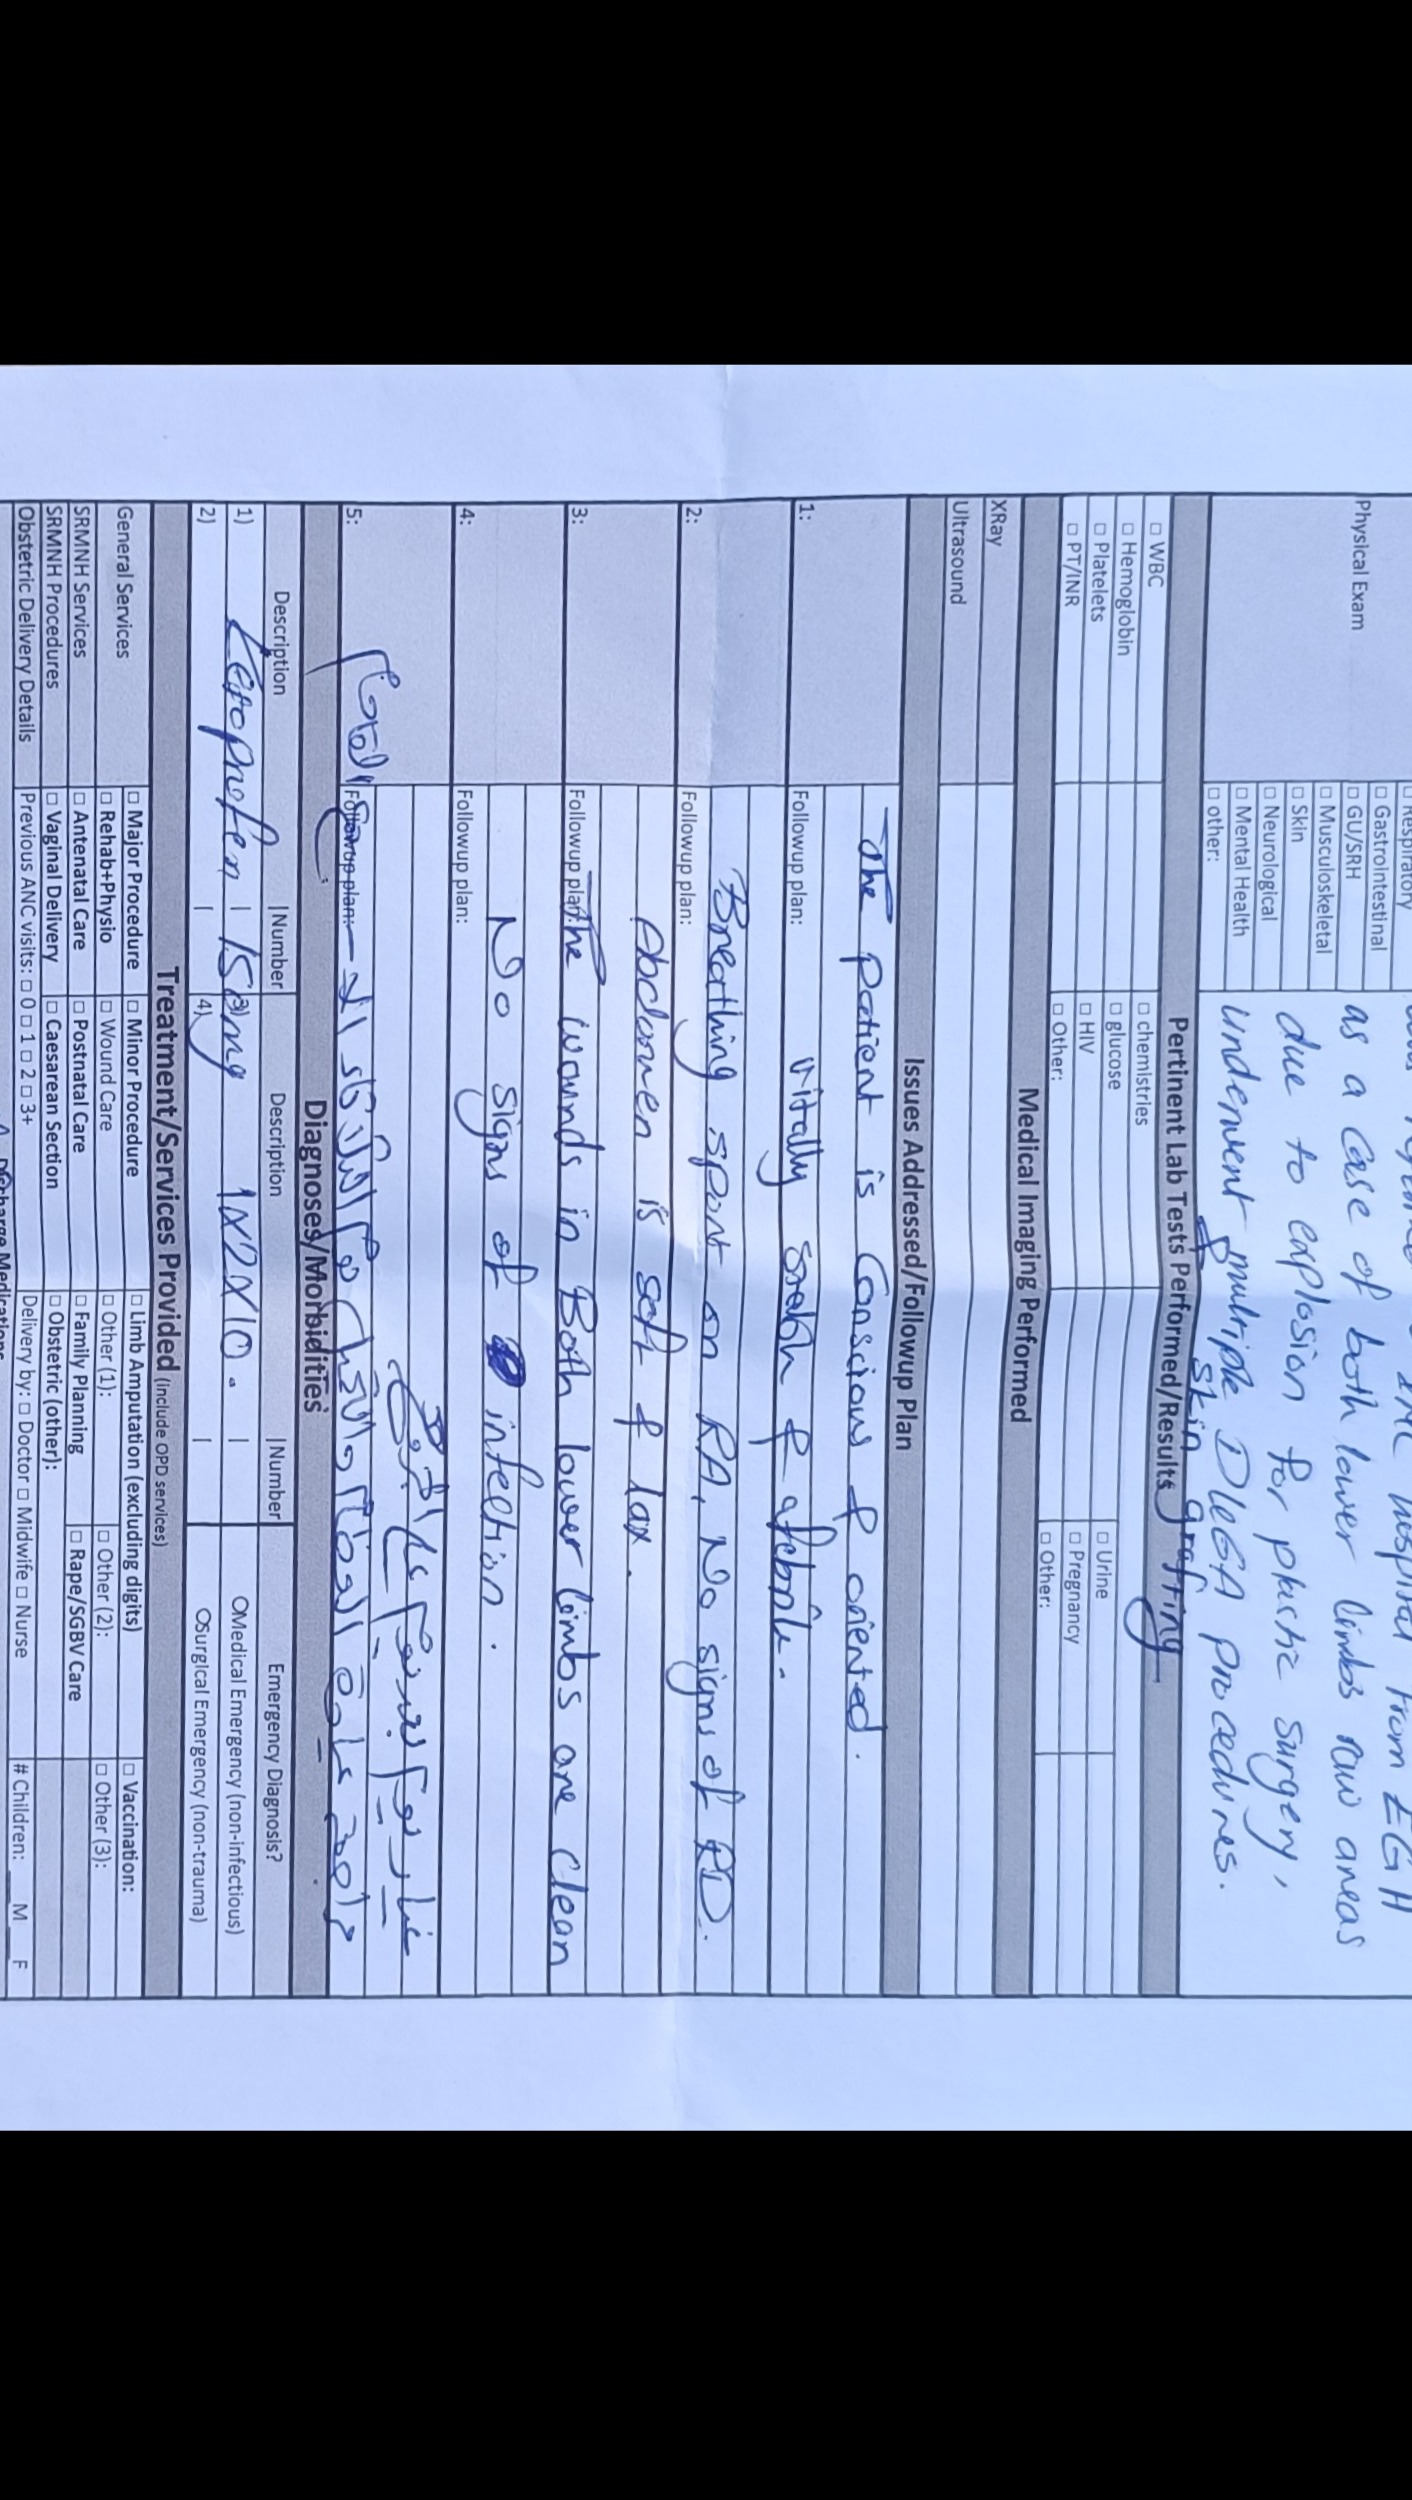 as a case of both lower limbs raw areas
due to explosion for plastic surgery,
underwent multiple DUGA procedures.
& skin grafting
Physical Exam
□ Respiratory
□ Gastrointestinal
□ GU/SRH
□ Musculoskeletal
□ Skin
□ Neurological
□ Mental Health
□ other:
Pertinent Lab Tests Performed/Results
□ WBC □ chemistries □ Urine
□ Hemoglobin □ glucose □ Pregnancy
□ Platelets □ HIV □ Other:
□ PT/INR □ Other:
Medical Imaging Performed
XRay
Ultrasound
Issues Addressed/Followup Plan
The patient is conscious & oriented.
1: Followup plan: vitally stable & afebrile.
Breathing spont on RA, No signs of RD.
2: Followup plan:
Abdomen is soft & lax.
3: Followup plan: The wounds in Both lower limbs are clean
No signs of infection.
4: Followup plan:
5: Followup plan:
Diagnoses/Morbidities
Description |Number Description |Number Emergency Diagnosis?
1) Ketoprofen | 150mg 1X2X10. | OMedical Emergency (non-infectious)
2) | 4) | OSurgical Emergency (non-trauma)
Treatment/Services Provided (include OPD services)
General Services □ Major Procedure □ Minor Procedure □ Limb Amputation (excluding digits) □ Vaccination:
□ Rehab+Physio □ Wound Care □ Other (1): □ Other (2): □ Other (3):
SRMNH Services □ Antenatal Care □ Postnatal Care □ Family Planning □ Rape/SGBV Care
SRMNH Procedures □ Vaginal Delivery □ Caesarean Section □ Obstetric (other):
Obstetric Delivery Details Previous ANC visits: □ 0 □ 1 □ 2 □ 3+ Delivery by: □ Doctor □ Midwife □ Nurse # Children: ___ M ___ F
Discharge Medications